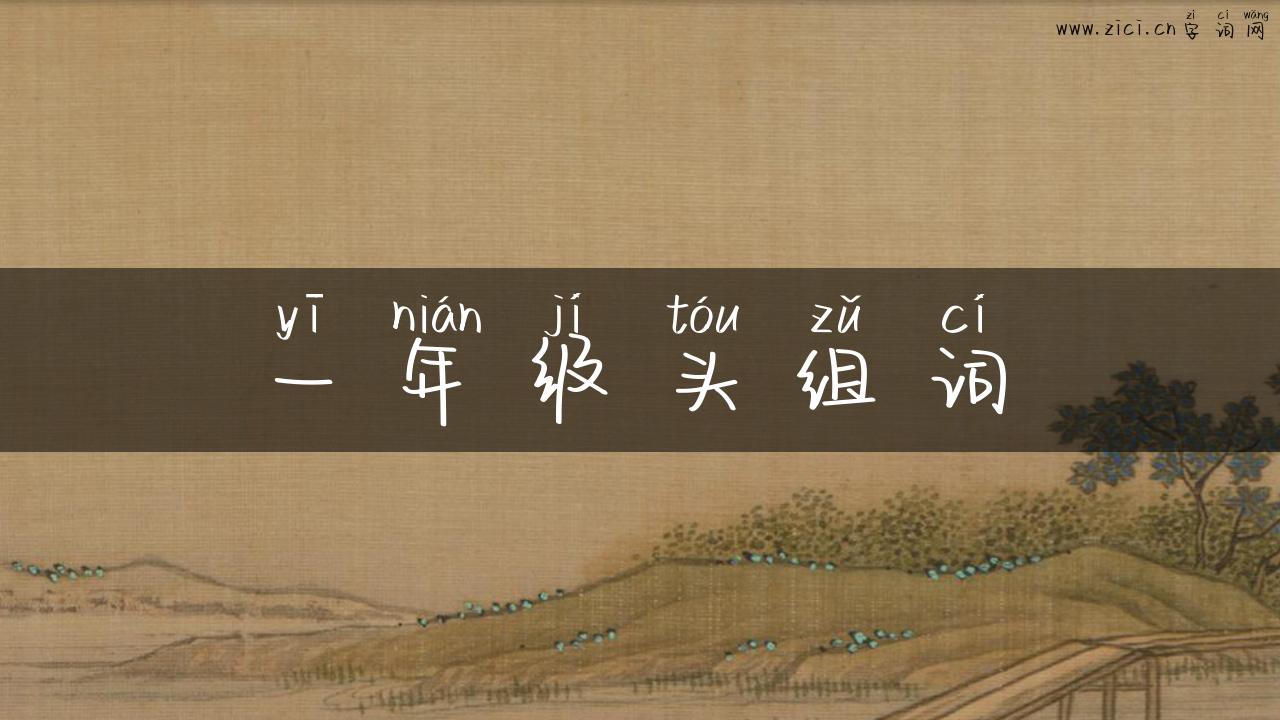 zì cí wǎng
www.zici.cn字词网
yī nián jí tóu zǔ cí
一年级头组词